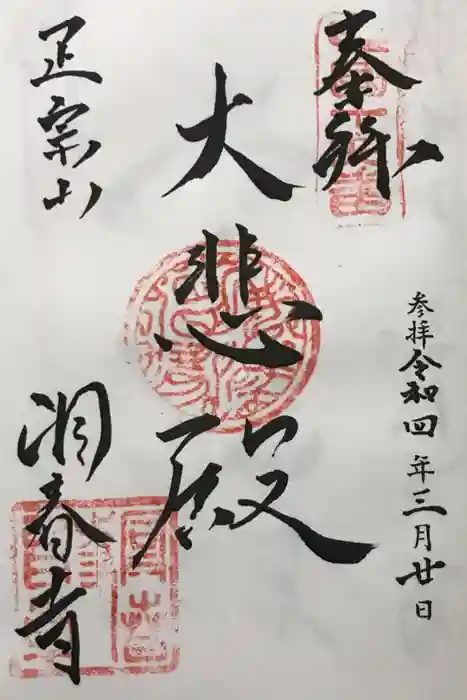 奉拝
参拝令和四年三月廿日
大悲殿
正宗山
洞春寺